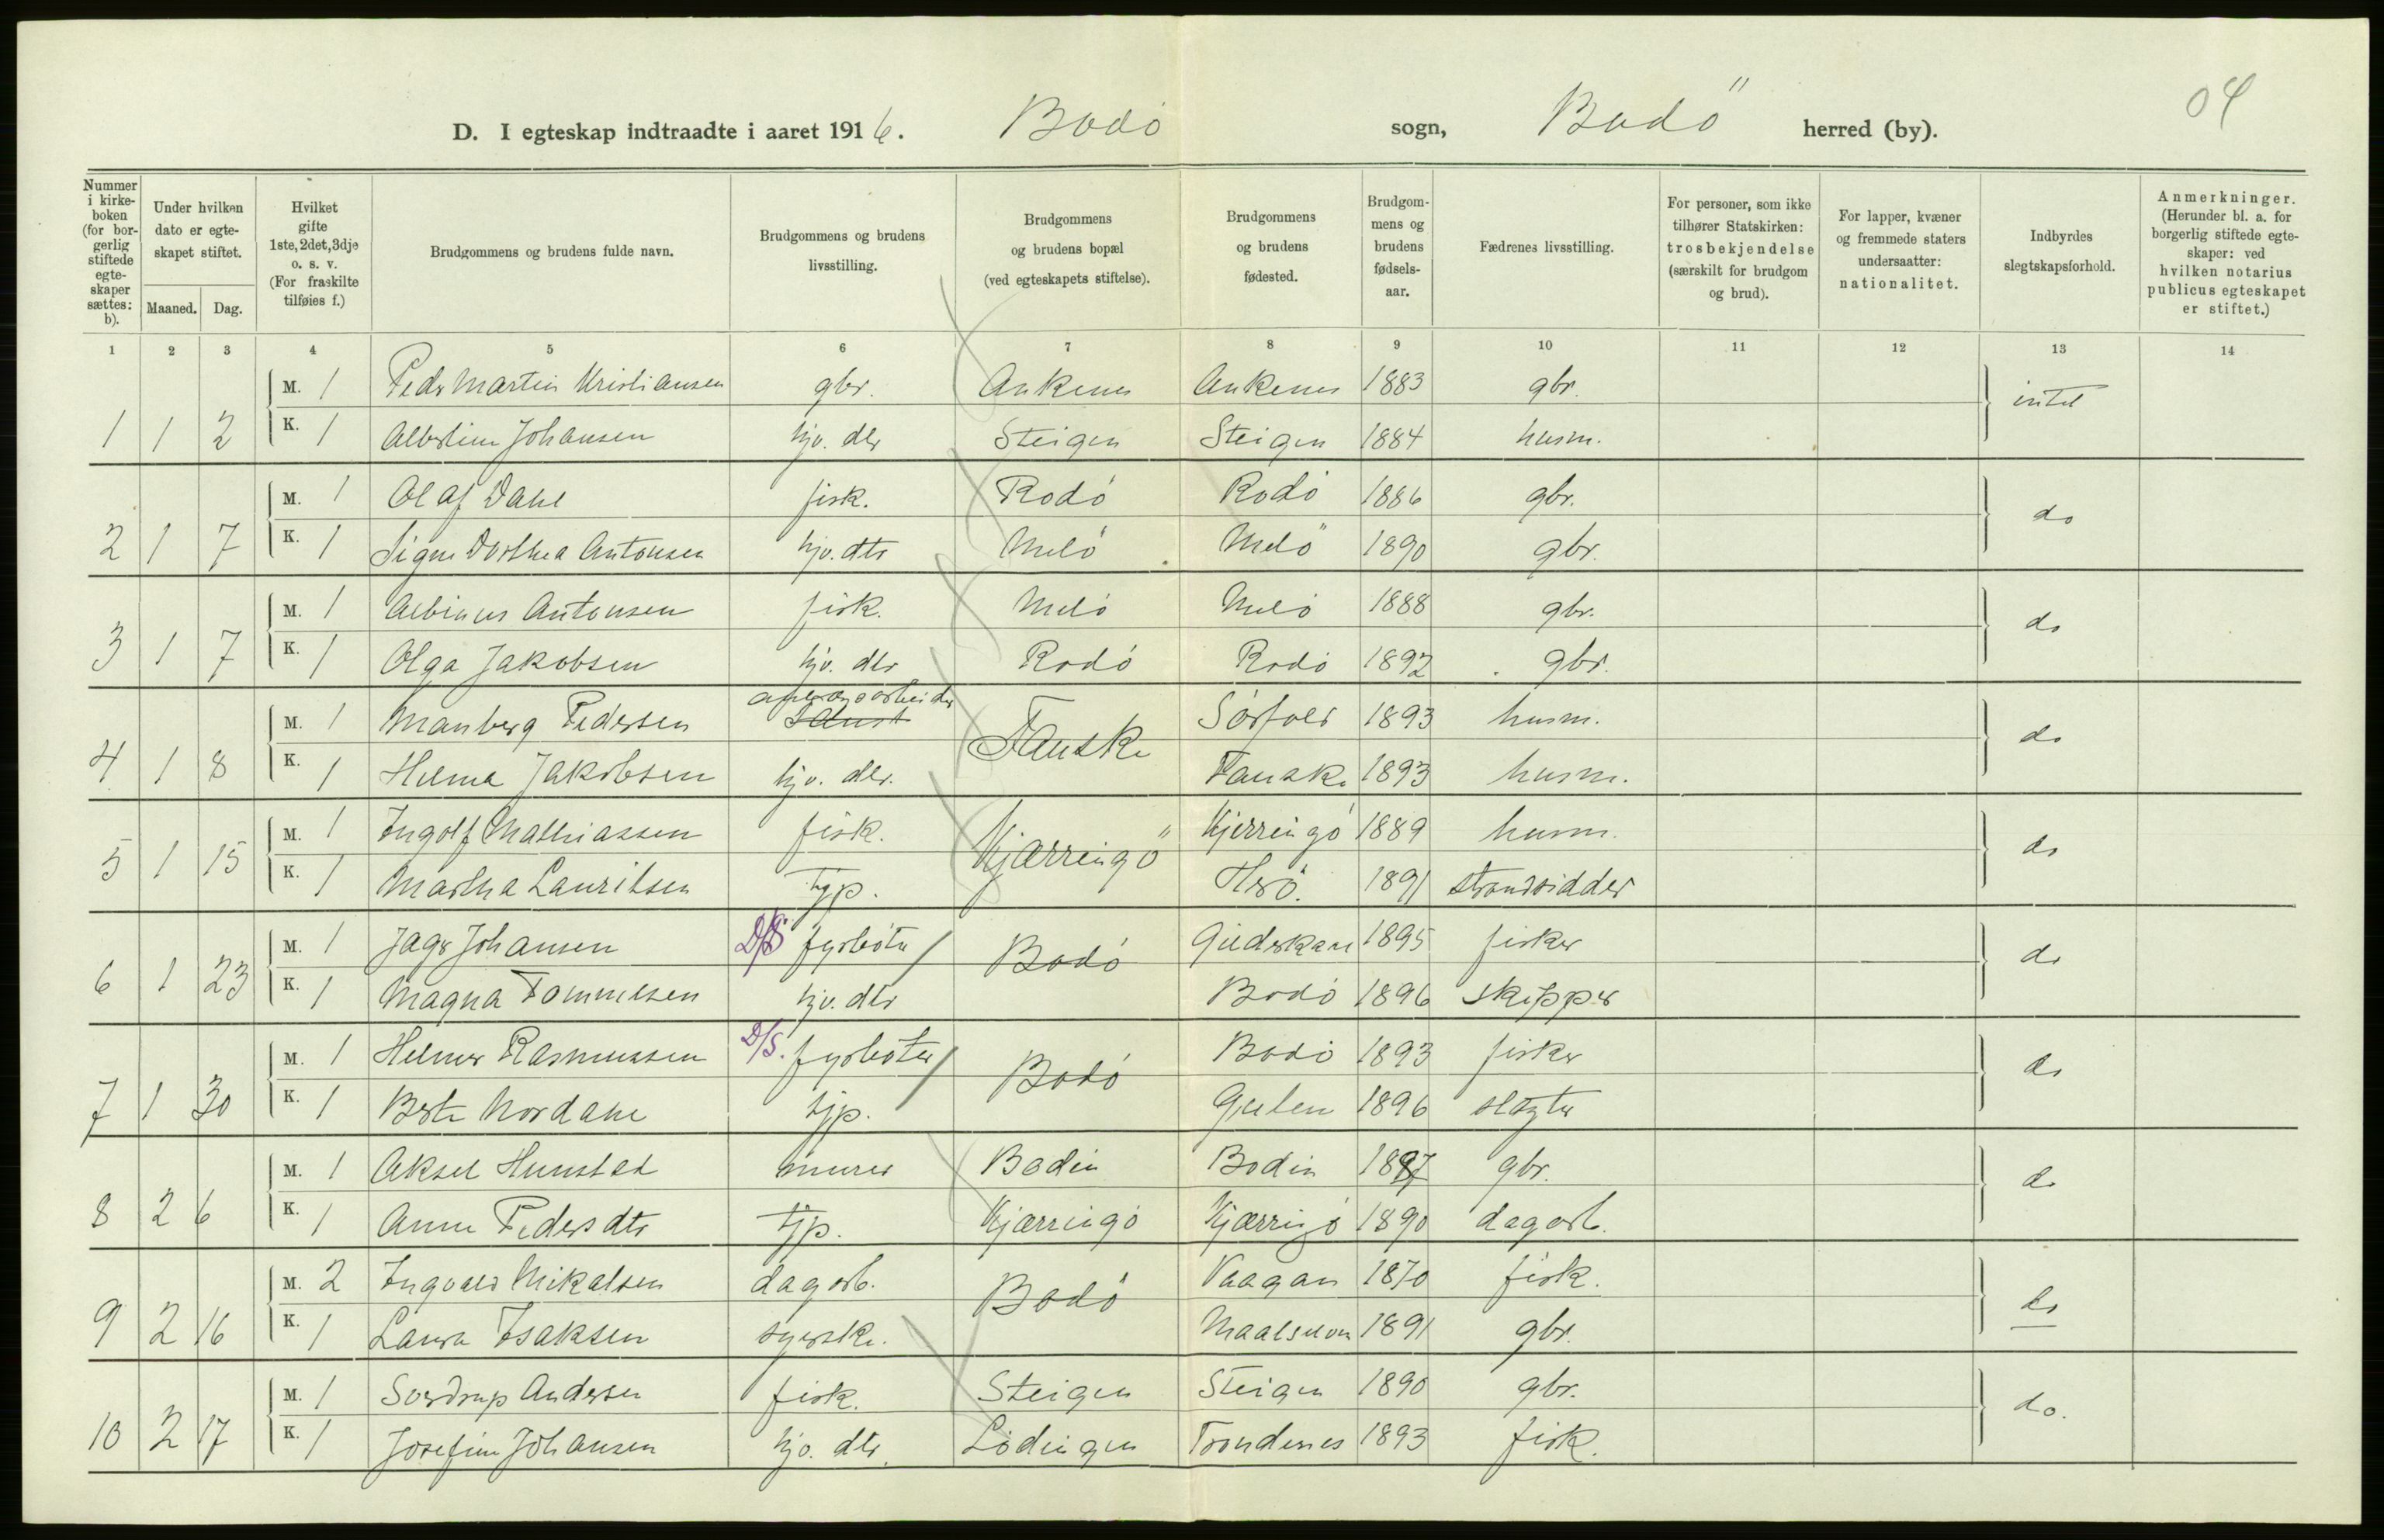 04
D. I egteskap indtraadte i aaret 1916. Bodö sogn, Bodö herred (by).
Nummer i kirkeboken (for borgerlig stiftede egteskaper sættes: b).
Under hvilken dato er egteskapet stiftet.
Maaned. Dag.
Hvilket gifte 1ste, 2det, 3dje o. s. v. (For fraskilte tilføies f.)
Brudgommens og brudens fulde navn.
Brudgommens og brudens livsstilling.
Brudgommens og brudens bopæl (ved egteskapets stiftelse).
Brudgommens og brudens fødested.
Brudgommens og brudens fødselsaar.
Fædrenes livsstilling.
For personer, som ikke tilhører Statskirken: trosbekjendelse (særskilt for brudgom og brud).
For lapper, kvæner og fremmede staters undersaatter: nationalitet.
Indbyrdes slegtskapsforhold.
Anmerkninger. (Herunder bl. a. for borgerlig stiftede egteskaper: ved hvilken notarius publicus egteskapet er stiftet.)
1 2 3 4 5 6 7 8 9 10 11 12 13 14
M. 1 Peder Martin Kristiansen gbr. Ankenes Ankenes 1883 gbr. intet
1 1 2 K. 1 Albertine Johansen hjv. dtr Steigen Steigen 1884 husm.
M. 1 Olaf Dahl fisk. Rodö Rodö 1886 gbr. do
2 1 7 K. 1 Signe Dorthea Antonsen hjv. dtr Melö Melö 1890 gbr.
M. 1 Albinus Antonsen fisk. Melö Melö 1888 gbr. do
3 1 7 K. 1 Olga Jakobsen hjv. dtr Rodö Rodö 1892 gbr.
M. 1 Manberg Pedersen anlægsarbeider Fauske Sörfold 1893 husm. do
4 1 8 K. 1 Helma Jakobsen hjv. dtr. Fauske 1893 husm.
M. 1 Ingolf Mathiassen fisk. Kjærringö Kjerringö 1889 husm. do
5 1 15 K. 1 Martha Lauritsen tjp. Herö. 1891 strandsidder
M. 1 Jager Johansen D/S fyrböter Bodö Gildeskaal 1895 fisker do
6 1 23 K. 1 Magna Tommelsen hjv. dtr Bodö 1896 skipper
M. 1 Helmer Rasmussen D/S. fyrböter Bodö Bodö 1893 fisker do
7 1 30 K. 1 Berte Nordahl tjp. Gulen 1896 slagter
M. 1 Aksel Hunstad murer Bodin Bodin 1887 gbr. do
8 2 6 K. 1 Anne Pedersdtr tjp. Kjærringö Kjærringö 1890 dagarb.
M. 2 Ingvald Mikalsen dagarb. Bodö Vaagan 1870 fisk. do
9 2 16 K. 1 Laura Isaksen syerske. Maalselven 1891 gbr.
M. 1 Sverdrup Andersen fisk. Steigen Steigen 1890 gbr. do.
10 2 17 K. 1 Josefine Johansen hjv. dtr. Lödingen Trondenes 1893 fisk.